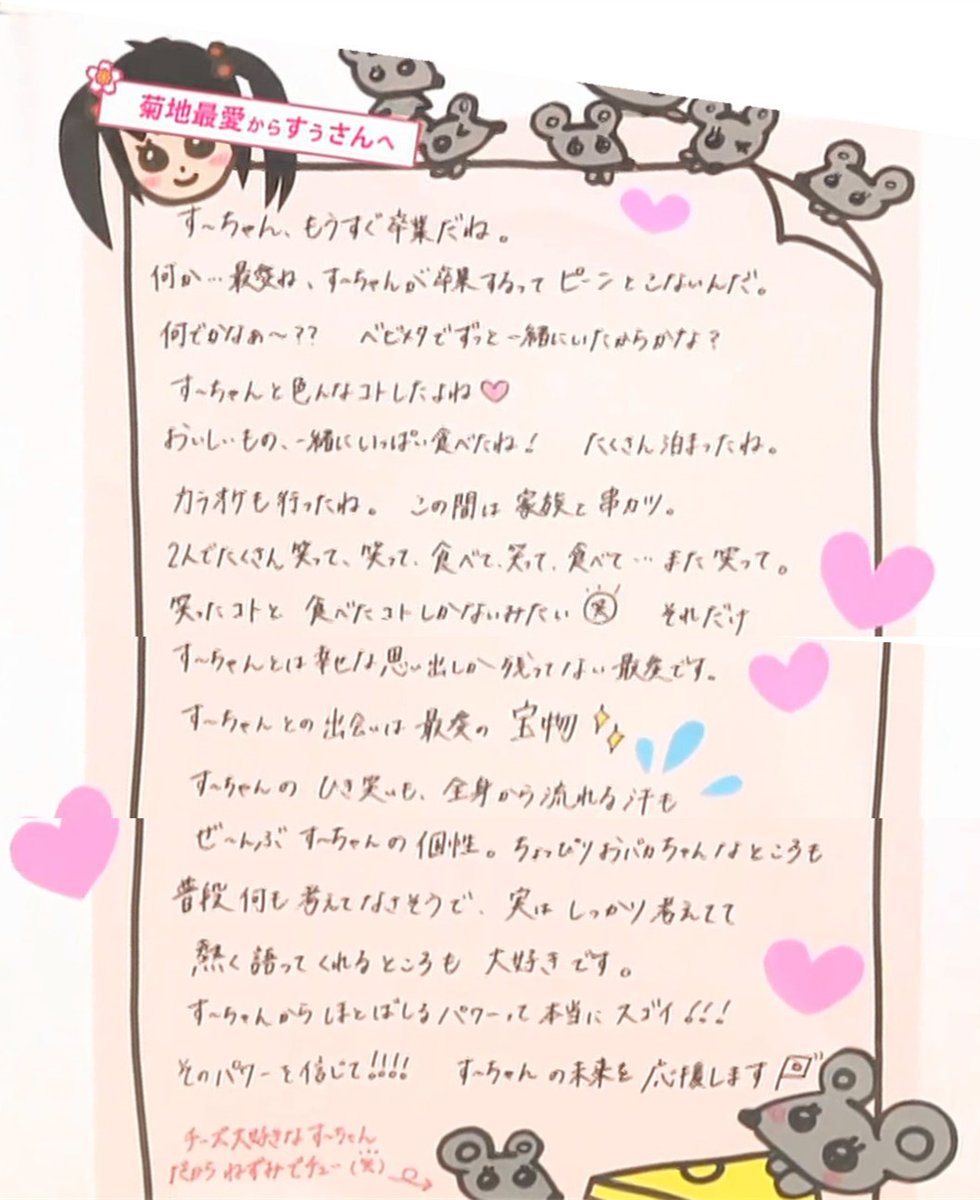 菊地最愛からすぅさんへ
す〜ちゃん、もうすぐ卒業だね。
何か…最愛ね、す〜ちゃんが卒業するってピーンとこないんだ。
何でかなぁ〜?? ベビメタでずっと一緒にいたからかな?
す〜ちゃんと色んなコトしたよね
おいしいもの、一緒にいっぱい食べたね! たくさん泊まったね。
カラオケも行ったね。 この間は家族と串カツ。
2人でたくさん笑って、笑って、食べて、笑って、食べて…また笑って。
笑ったコトと食べたコトしかないみたい(笑) それだけ
す〜ちゃんとは幸せな思い出しか残ってない最愛です。
す〜ちゃんとの出会いは最愛の宝物
す〜ちゃんのひき笑いも、全身から流れる汗も
ぜ〜んぶす〜ちゃんの個性。ちょっぴりおバカちゃんなところも
普段何も考えてなさそうで、実はしっかり考えてて
熱く語ってくれるところも大好きです。
す〜ちゃんからほとばしるパワーって本当にスゴイ!!!
そのパワーを信じて!!!! す〜ちゃんの未来を応援します
チーズ大好きなす〜ちゃん
だからねずみでチュー(笑)